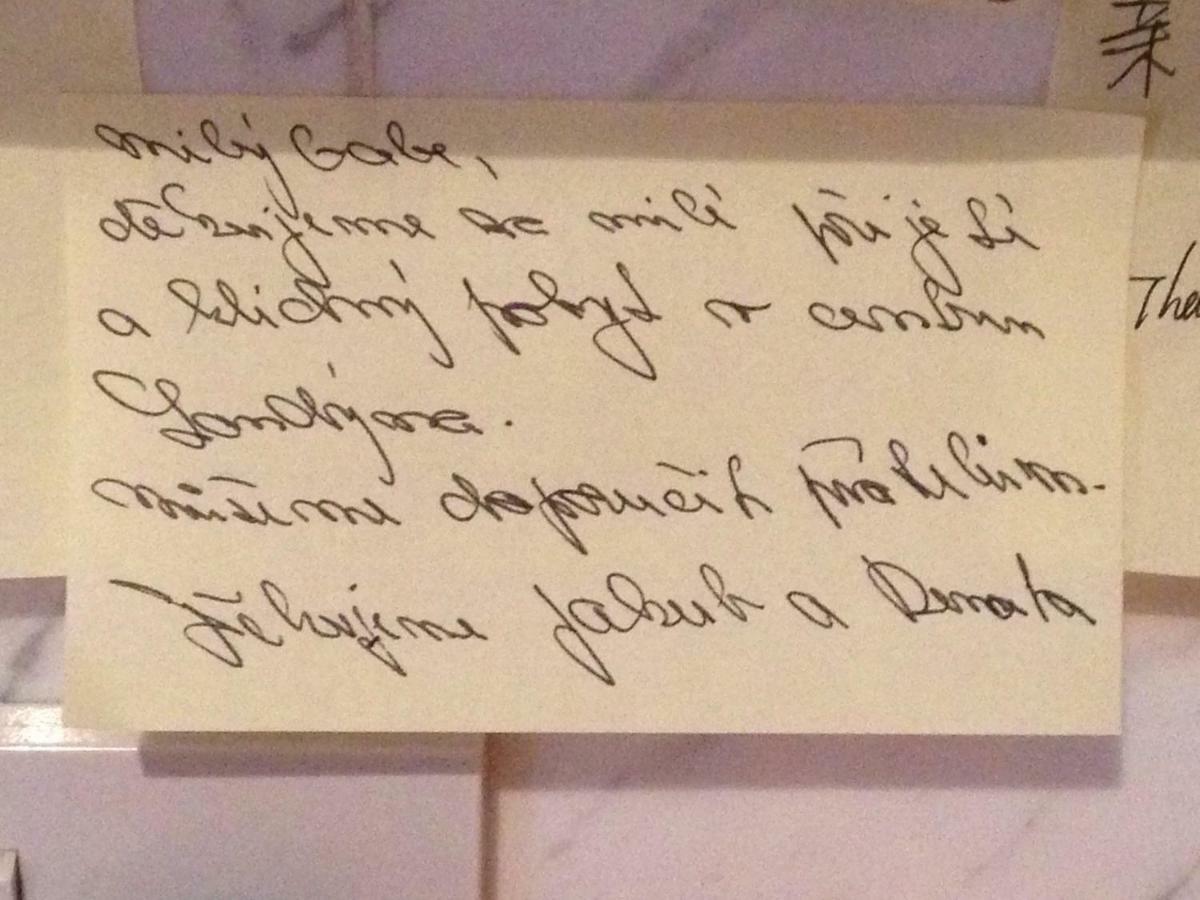 milý Gabe,
děkujeme za milé přijetí
a klidný pobyt v centru
Londýna.
můžeme doporučit přátelům.
Děkujeme Jakub a Renata
亲
Tha